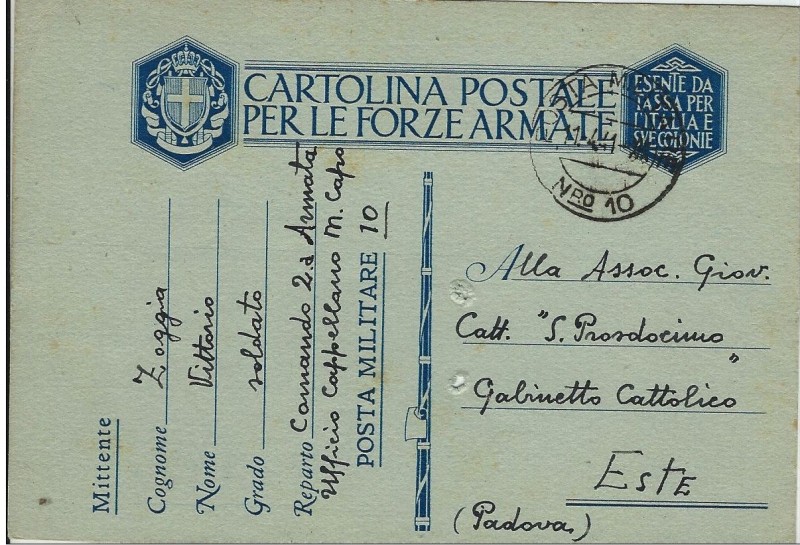 CARTOLINA POSTALE
PER LE FORZE ARMATE
ESENTE DA
TASSA PER
L'ITALIA E
SVE COLONIE
POSTA MIL
1.4.41
NRO 10
Mittente
Cognome Zoggia
Nome Vittorio
Grado soldato
Reparto Comando 2.a Armata
Ufficio Cappellano M. Capo
POSTA MILITARE 10
Alla Assoc. Giov.
Catt. "S. Prosdocimo"
Gabinetto Cattolico
Este
(Padova)